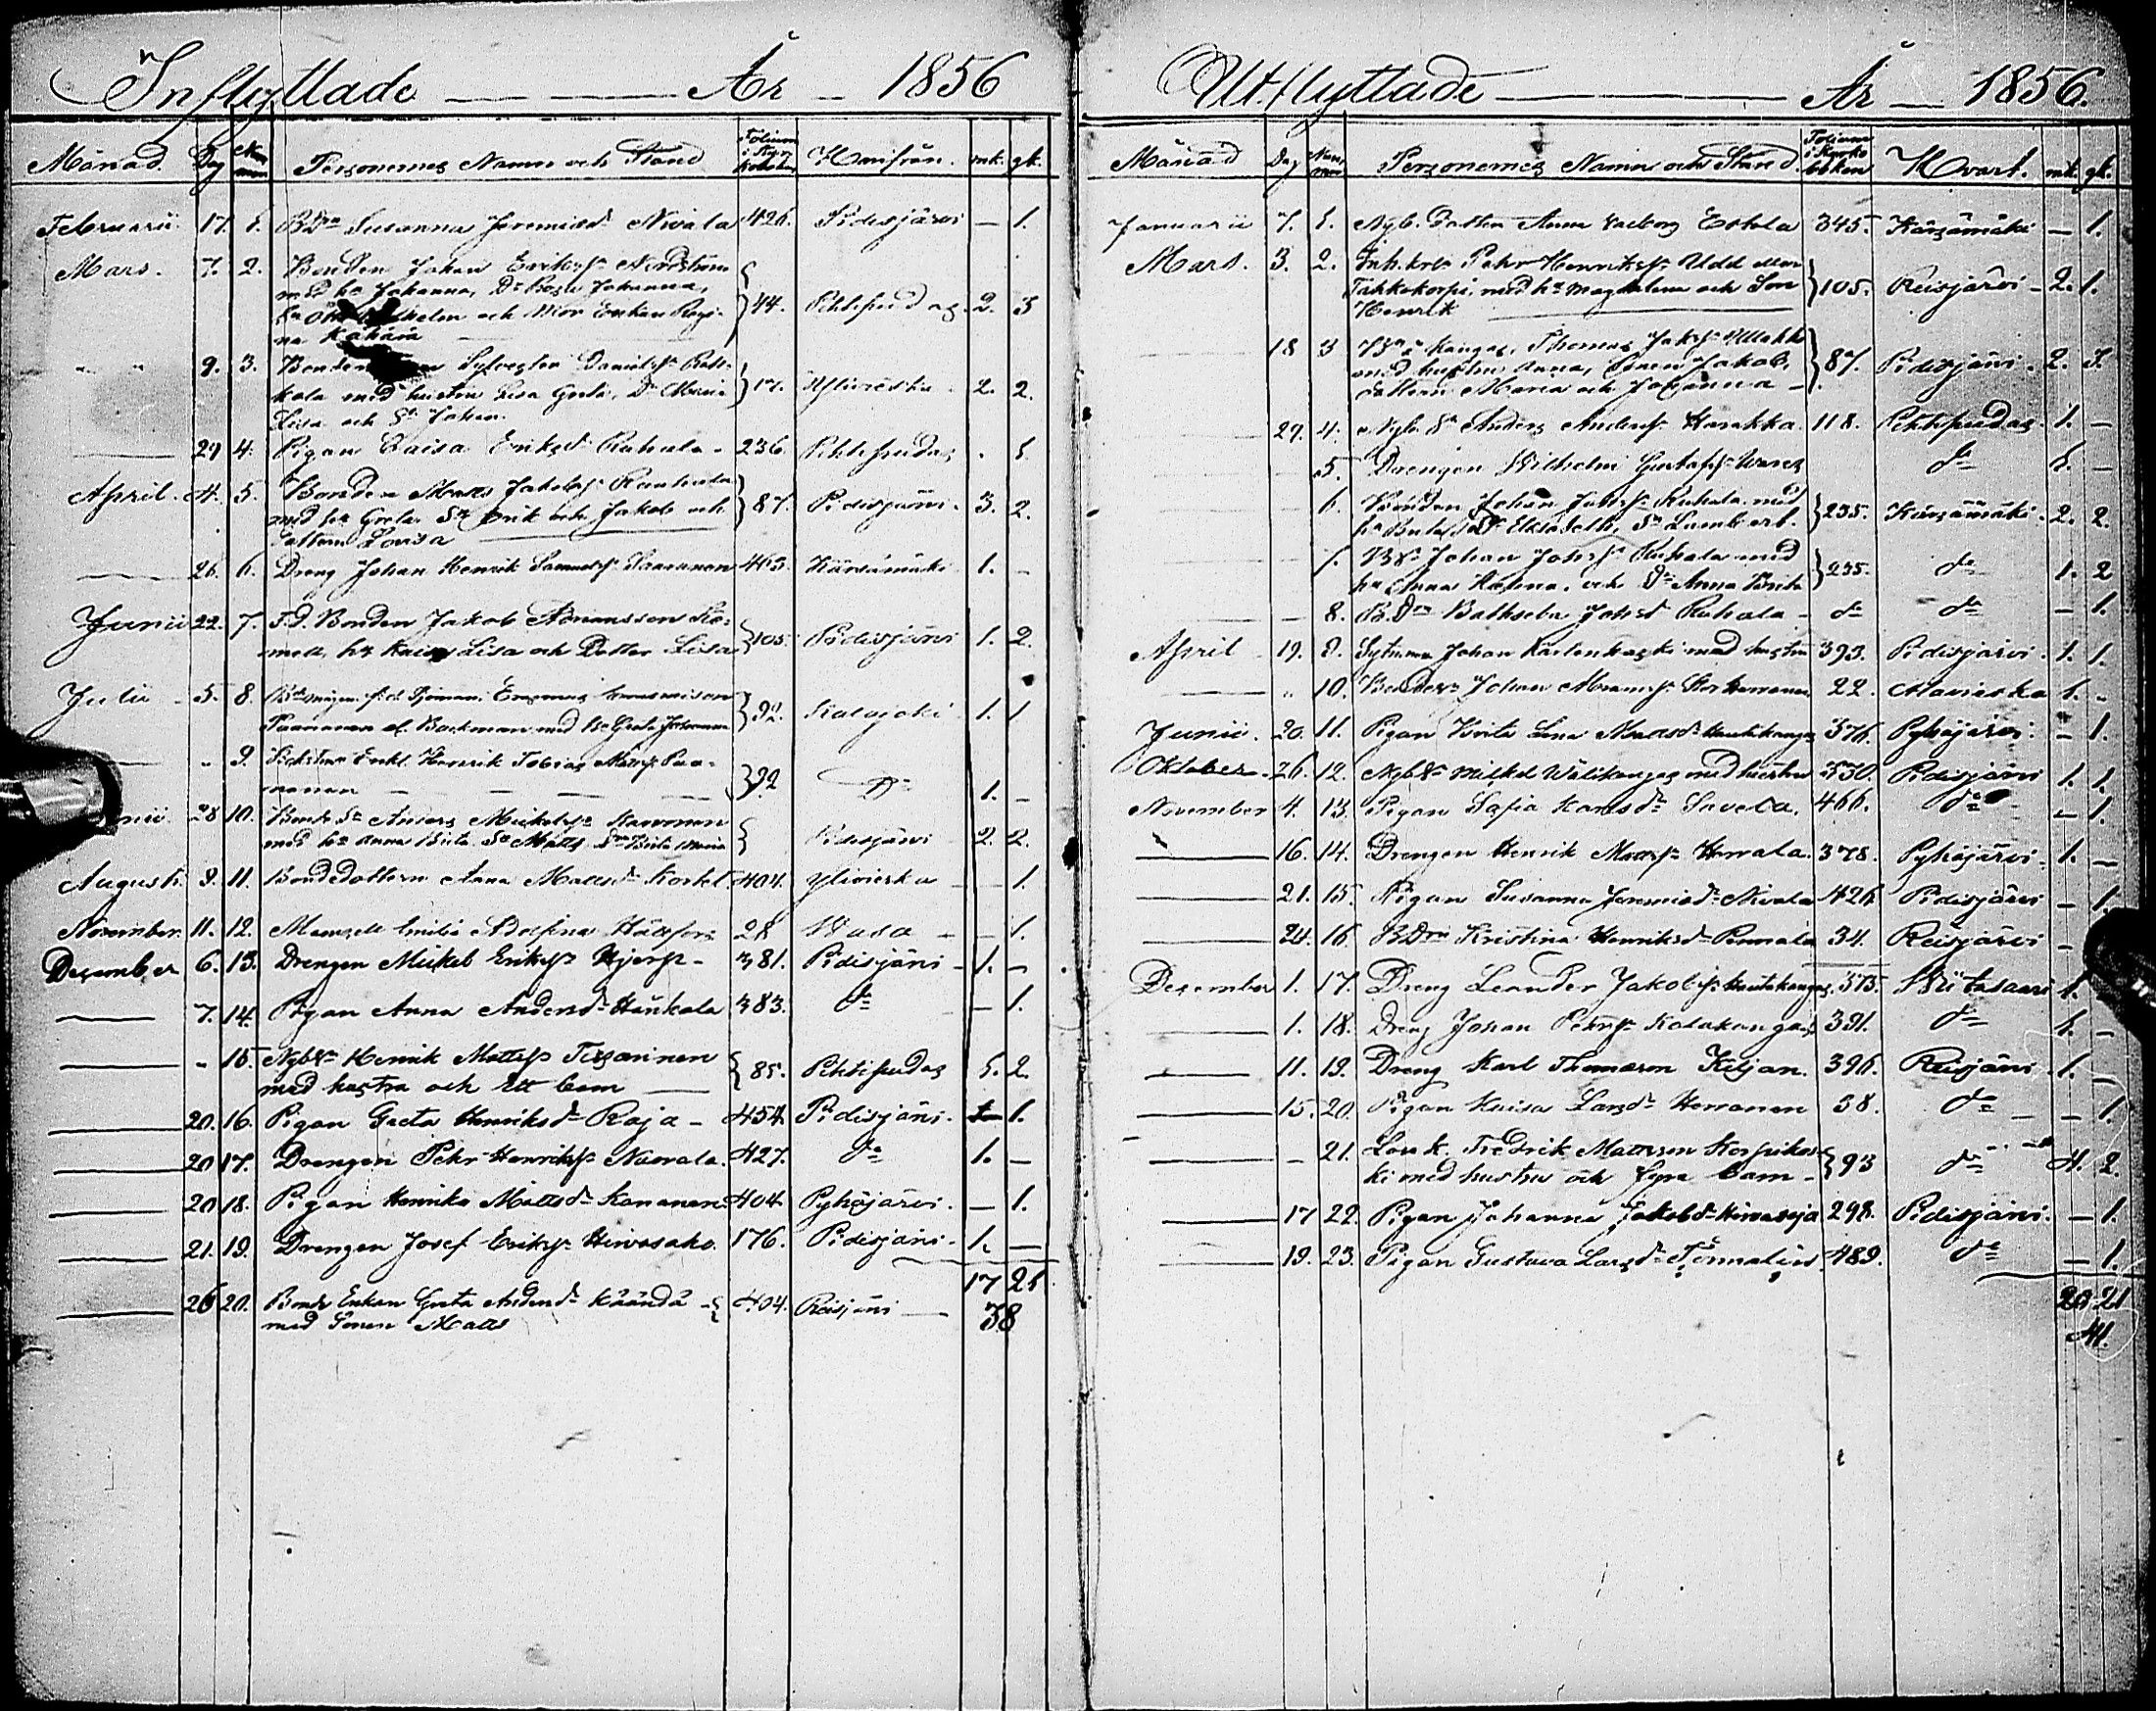 Inflyttade År 1856
Månad. Dag Num̄er Personernes Namn och Stånd Folium i Kyrkoboken Hvarifrån. mk. qk.
Februarii 17. 1. BDrn Susanna Jeremiæd. Nivala 426. Pidisjärvi — 1.
Mars. 7. 2. Bonden Johan Eriksson Nordström
med h. Johanna, Dr Johanna,
och Enkan Regi-
na 44. Pihtipudas 2. 3
9. 3. Bonden Sylvester Danielss.
kala med hustru Lisa Greta, Dr Maria
Lisa och Sn Johan. 17. Ylivieska 2. 2.
29 4. Pigan Caisa Eriksd. Ruhala - 236. Pihtipudas . 1
April. 4. 5. Bonden Matts Jakobss. Rautiola
med h. Greta. Sr Erik och Jakob och
dottren Lovisa 87. Pidisjärvi. 3. 2.
26. 6. Dreng Johan Henrik Samuelss. Saaranen 463. Kärsämäki 1. -
Junii 22. 7. F.d. Bonden Jakob Adamsson
h. Kaisa Lisa och Dotter Lisa 105. Pidisjärvi 1. 2.
Julii 5. 8. Erasmus
Paananen el. Backman med h. Greta Johanna 92. Kalajoki 1. 1
" 9. Enkl. Henrik Tobias Matts. Paa-
nanen 92 Do 1. -
28 10. Bonde Sn Anders Mickelss.
med h. Anna Brita Sn Matts Dr Brita Maria Pidisjärvi 2. 2.
Augusti. 9. 11. Bonddottern Anna Mattsd. 404. Ylivieska 1.
November. 11. 12. Mamsell Emilia Adolfina Hällfors 28 Wasa - 1.
December 6. 13. Drengen Mickel Erikss. Hjerp - 381. Pidisjärvi - 1. -
7. 14. Pigan Anna Andersd. Hankala 383. do - 1.
- 15. NybSn Henrik Mattss. Tissarinen
med hustru och ett barn 85. Pihtipudas 1. 2.
20. 16. Pigan Greta Henriksd. Raja - 454. Pidisjärvi. 1.
20 17. Drengen Pehr Henrikss. Navala. 427. do 1. -
20 18. Pigan Henrika Mattsd. Kananen 404. Pyhäjärvi. - 1.
21. 19. Drengen Josef Erikss. Hirvasaho. 176. Pidisjärvi. 1. -
17 21
26 20. Bonde Enkan Greta Andersd. Käändä
med Sonen Matts 404. Reisjärvi
38
Utflyttade År 1856.
Månad Dag Num̄er Personernes Namn och Stånd. Folium i Kyrkoboken Hvart. mk. qk.
Januarii 7. 1. Nyb. Dotter Anna Valborg Eskola 345. Kärsämäki — 1.
Mars. 3. 2. Inh. Pehr Henrikss. Udd eller
Takkokorpi, med h. Magdalena och Son
Henrik 105. Reisjärvi - 2. 1.
18 3 Kangas, Thomas Jakss.
med hustru Anna, Sonen Jakob,
dottern Maria och Johanna 87. Pidisjärvi. 2. 3.
29. 4. Nyb. Sn Anders Anderss. Harakka. 118. Pihtipudas 1. -
5. Drengen Wilhelm Gustafss. do 1. -
6. Bonden Johan Johss. Ruhala med
h. Brita, Dr Elisabeth, Sn Lambert. 235. Kärsämäki. 2. 2.
7. BSn Johan Johss. Ruhala med
h. Anna Helena och Dr Anna Brita 235. do 1. 2
8. B.Drn Bathseba Johsd Ruhala - do do - 1.
April 19. 9. Johan Karlenkaski med hustru 393. Pidisjärvi. 1. 1.
" 10. Johan Abramss. 22. Haveriska 1. -
Junii. 20. 11. Pigan Brita Lena Mattsd. Hautakangas 376. Pyhäjärvi. - 1.
Oktober. 26. 12. NybSn Mickel Wälikangas med hustru 330. Pidisjärvi 1. 1.
November 4. 13. Pigan Sofia Karlsd. Savela. 466. do - 1.
16. 14. Drengen Henrik Mattss. 378. Pyhäjärvi. 1. -
21. 15. Pigan Susanna Jeremiæd. Nivala 426 Pidisjärvi - 1.
24. 16. BDrn Kristina Henriksd. 34. Reisjärvi -
December 1. 17. Dreng Leander Jakobss. Hautakangas. 373. Wiitasaari 1.
1. 18. Dreng Johan Pehrss. Kalakangas 391. do 1. -
11. 19. Dreng Karl Thomæson Kiljan. 396. Reisjärvi 1. -
15. 20. Pigan Kaisa Larsd. Herranen 38. do - 1.
- 21. Fredrik Mattsson Korpikos-
ki med hustru och fyra barn - 93 do 4. 2.
17 22. Pigan Johanna Jakobsd. Hirvaoja 298. Pidisjärvi. - 1.
19. 23. Pigan Gustava Larsd. 489. do - 1.
20 21
41.